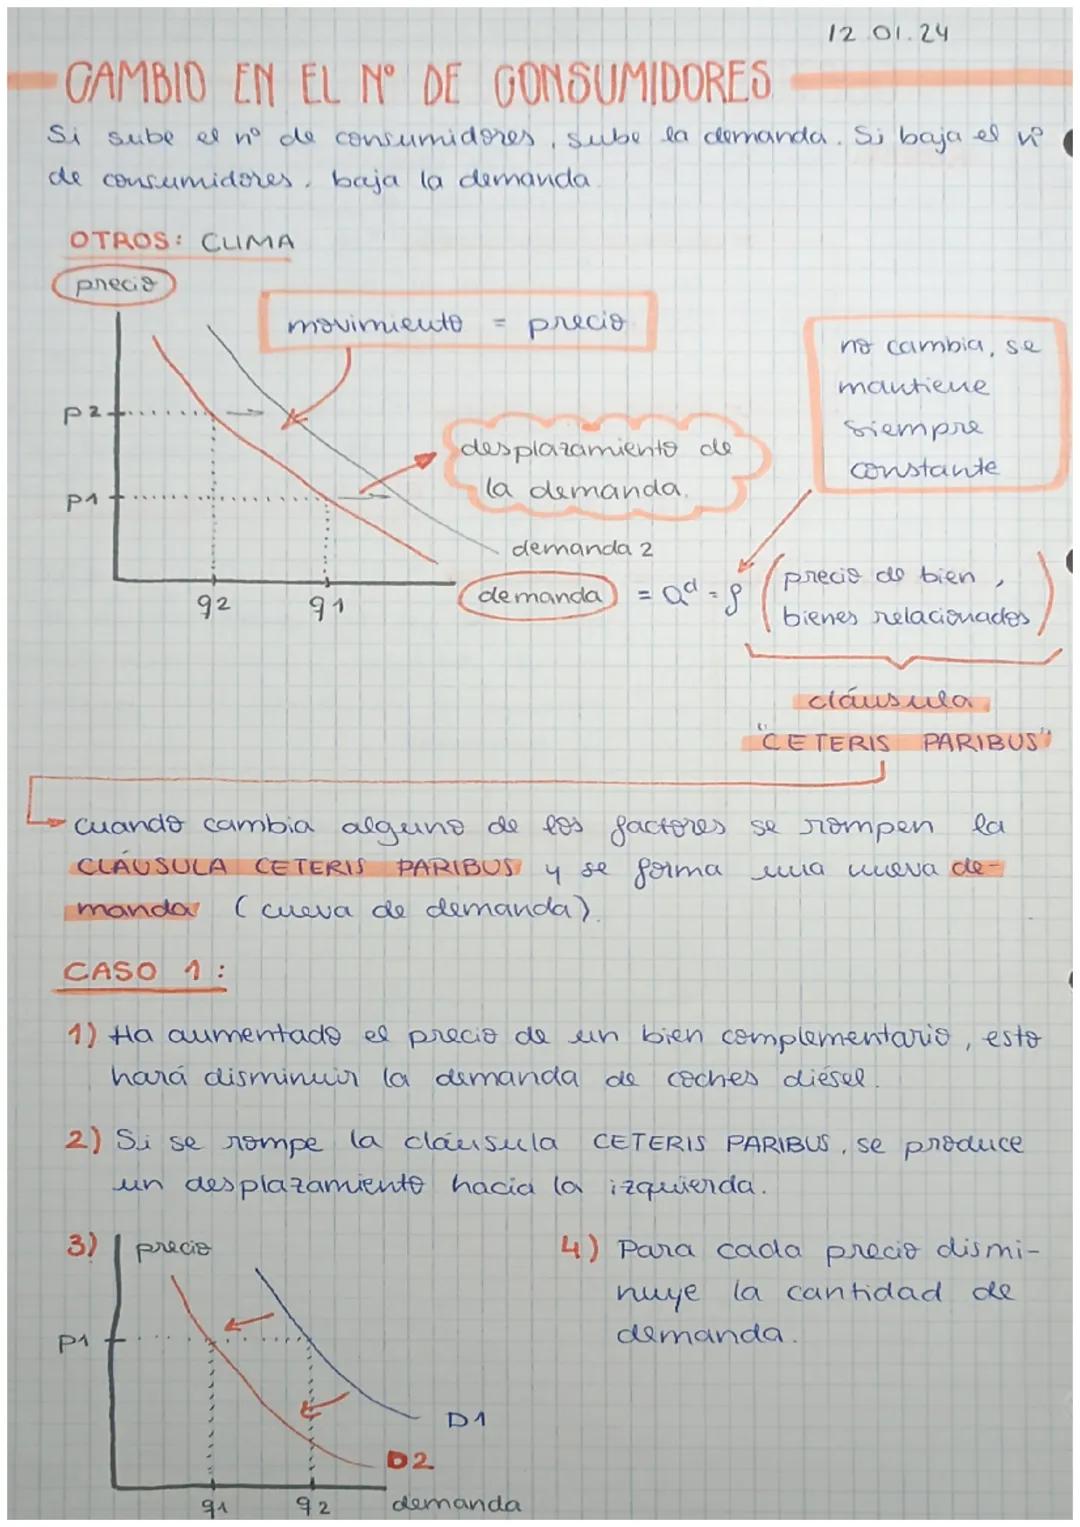 12.01.24
CAMBIO EN EL Nº DE CONSUMIDORES
Si sube el nº de consumidores, sube la demanda. Si baja el nº
de consumidores, baja la demanda.
OTROS: CLIMA
precio
movimiento = precio
no cambia, se
mantiene
siempre
constante
p2
desplazamiento de
la demanda.
p1
demanda 2
q2
q1
demanda = Qd = f (precio de bien,
bienes relacionados)
cláusula
"CETERIS PARIBUS"
cuando cambia alguno de los factores se rompen la
CLÁUSULA CETERIS PARIBUS y se forma una nueva de-
manda (cueva de demanda).
CASO 1:
1) Ha aumentado el precio de un bien complementario, esto
hará disminuir la demanda de coches diésel.
2) Si se rompe la cláusula CETERIS PARIBUS, se produce
un desplazamiento hacia la izquierda.
3)
precio
p1
D1
D2
q1
q2
demanda
4) Para cada precio dismi-
nuye la cantidad de
demanda.